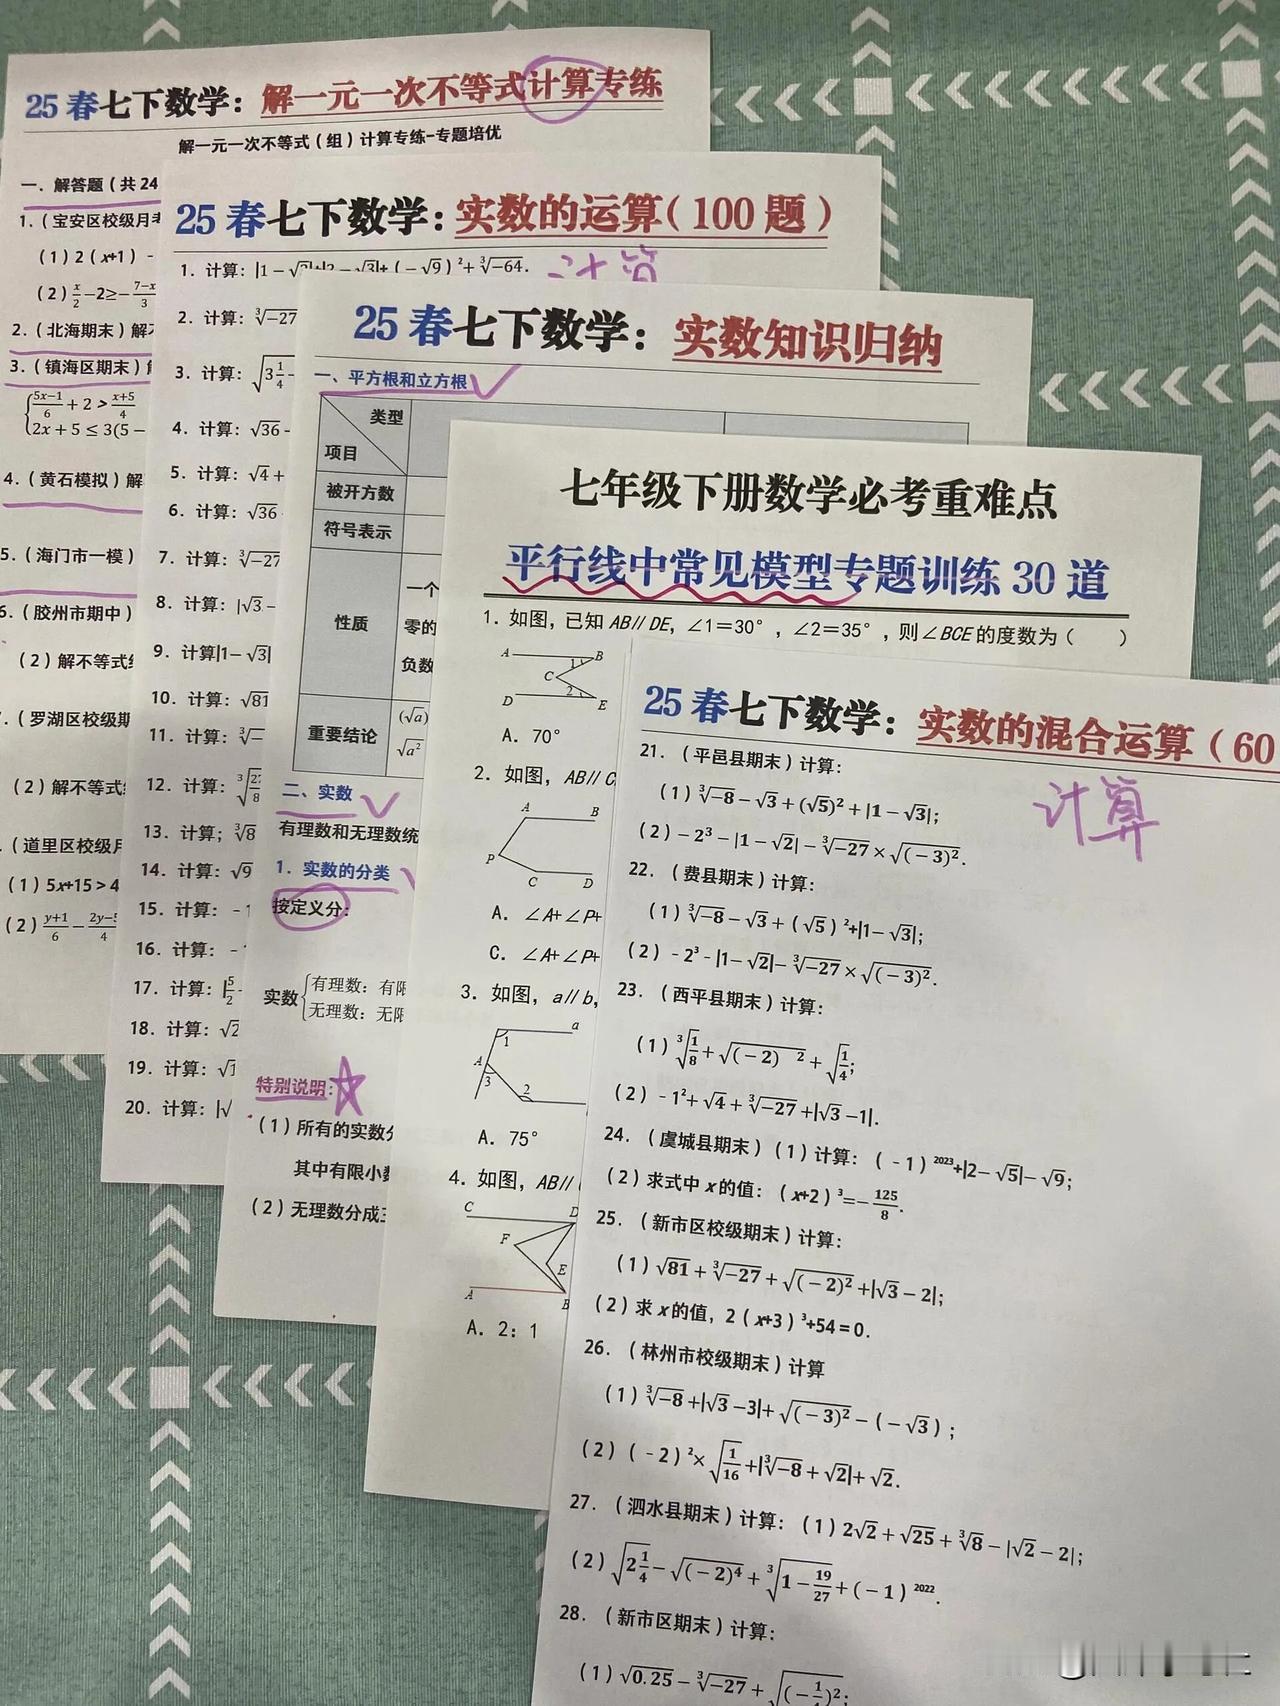 25 春七下数学：解一元一次不等式计算专练
解一元一次不等式（组）计算专练-专题培优
一．解答题（共 24
1．（宝安区校级月考
（1）2（x+1）-
（2）x/2-2≥-(7-x)/3
2．（北海期末）解
3．（镇海区期末）
{(5x-1)/6+2>(x+5)/4
2x+5≤3(5-
4．（黄石模拟）解
5．（海门市一模）
6．（胶州市期中）
（2）解不等式组
．（罗湖区校级期
（2）解不等式
．（道里区校级月
（1）5x+15>4
（2）(y+1)/6-(2y-5)/4
25 春七下数学：实数的运算（100 题）
1．计算：|1-√2|+|2-√3|+（-√9）²+∛-64．
计算
2．计算：∛-27
3．计算：√3 1/4-
4．计算：√36-
5．计算：√4+
6．计算：√36
7．计算：∛-27
8．计算：|√3-
9．计算|1-√3|
10．计算：√81
11．计算：∛-
12．计算：
13．计算；∛8
14．计算：√9
15．计算：-
16．计算：-
17．计算：|5/2-
18．计算：√2
19．计算：√1
20．计算：|√
25 春七下数学：实数知识归纳
一、平方根和立方根
类型
项目
被开方数
符号表示
性质
一个
零的
负数
重要结论
(√a)
√a²
二、实数
有理数和无理数统
1．实数的分类
按定义分：
实数{有理数：有限
无理数：无限
特别说明：
（1）所有的实数分
其中有限小数
（2）无理数分成三
七年级下册数学必考重难点
平行线中常见模型专题训练 30 道
1．如图，已知 AB∥DE，∠1＝30°，∠2＝35°，则∠BCE 的度数为（　　）
A 1 B
C
D 2 E
A．70°
2．如图，AB∥C
A B
P
C D
A．∠A+∠P+
C．∠A+∠P+
3．如图，a∥b，
a
1
A
3 2
A．75°
4．如图，AB∥
C D
F
E
A B
A．2：1
25 春七下数学：实数的混合运算（60
计算
21．（平邑县期末）计算：
（1）∛-8-√3+(√5)²+|1-√3|；
（2）-2³-|1-√2|-∛-27×√(-3)²．
22．（费县期末）计算：
（1）∛-8-√3+（√5）²+|1-√3|；
（2）-2³-|1-√2|-∛-27×√(-3)²．
23．（西平县期末）计算：
（1）∛1/8+√(-2)²+√1/4；
（2）-1²+√4+∛-27+|√3-1|．
24．（虞城县期末）（1）计算：（-1）²⁰²³+|2-√5|-√9；
（2）求式中 x 的值：（x+2）³=-125/8．
25．（新市区校级期末）计算：
（1）√81+∛-27+√(-2)²+|√3-2|；
（2）求 x 的值，2（x+3）³+54=0．
26．（林州市校级期末）计算
（1）∛-8+|√3-3|+√(-3)²-(-√3)；
（2）（-2）²×√1/16+|∛-8+√2|+√2．
27．（泗水县期末）计算：（1）2√2+√25+∛8-|√2-2|；
（2）√2 1/4-√(-2)⁴+∛1-19/27+（-1）²⁰²²．
28．（新市区期末）计算：
（1）√0.25-∛-27+√(-1/4)²；